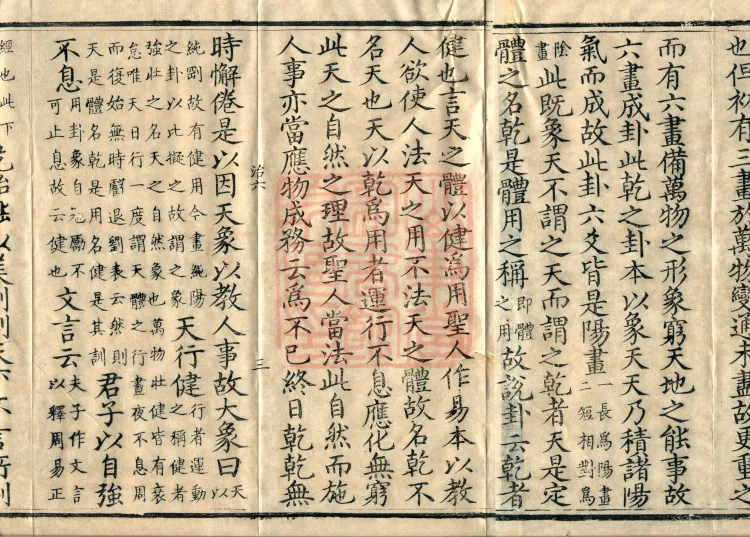 也但初有三畫於萬物變通未盡故更重之
而有六畫備萬物之形象窮天地之能事故
六畫成卦此乾之卦本以象天天乃積諸陽
氣而成故此卦六爻皆是陽畫一長爲陽畫
二短相對爲
陰
畫此既象天不謂之天而謂之乾者天是定
體之名乾是體用之稱即體
之用故說卦云乾者
健也言天之體以健爲用聖人作易本以教
人欲使人法天之用不法天之體故名乾不
名天也天以乾爲用者運行不息應化無窮
此天之自然之理故聖人當法此自然而施
人事亦當應物成務云爲不已終日乾乾無
治六
三
時懈倦是以因天象以教人事故大象曰天
以
純剛故有健用今畫純陽
之卦以此擬之故謂之象天行健行者運動
之稱健者
強壯之名天之自然象也萬物壯健皆有衰
怠唯天日行一度謂天體之行晝夜不息周
而復始無時虧退劉表云然則
天是體名乾是用名健是其訓君子以自強
不息用卦象自勵不
可止息故云健也文言云夫子作文言
以釋周易正
經也此下